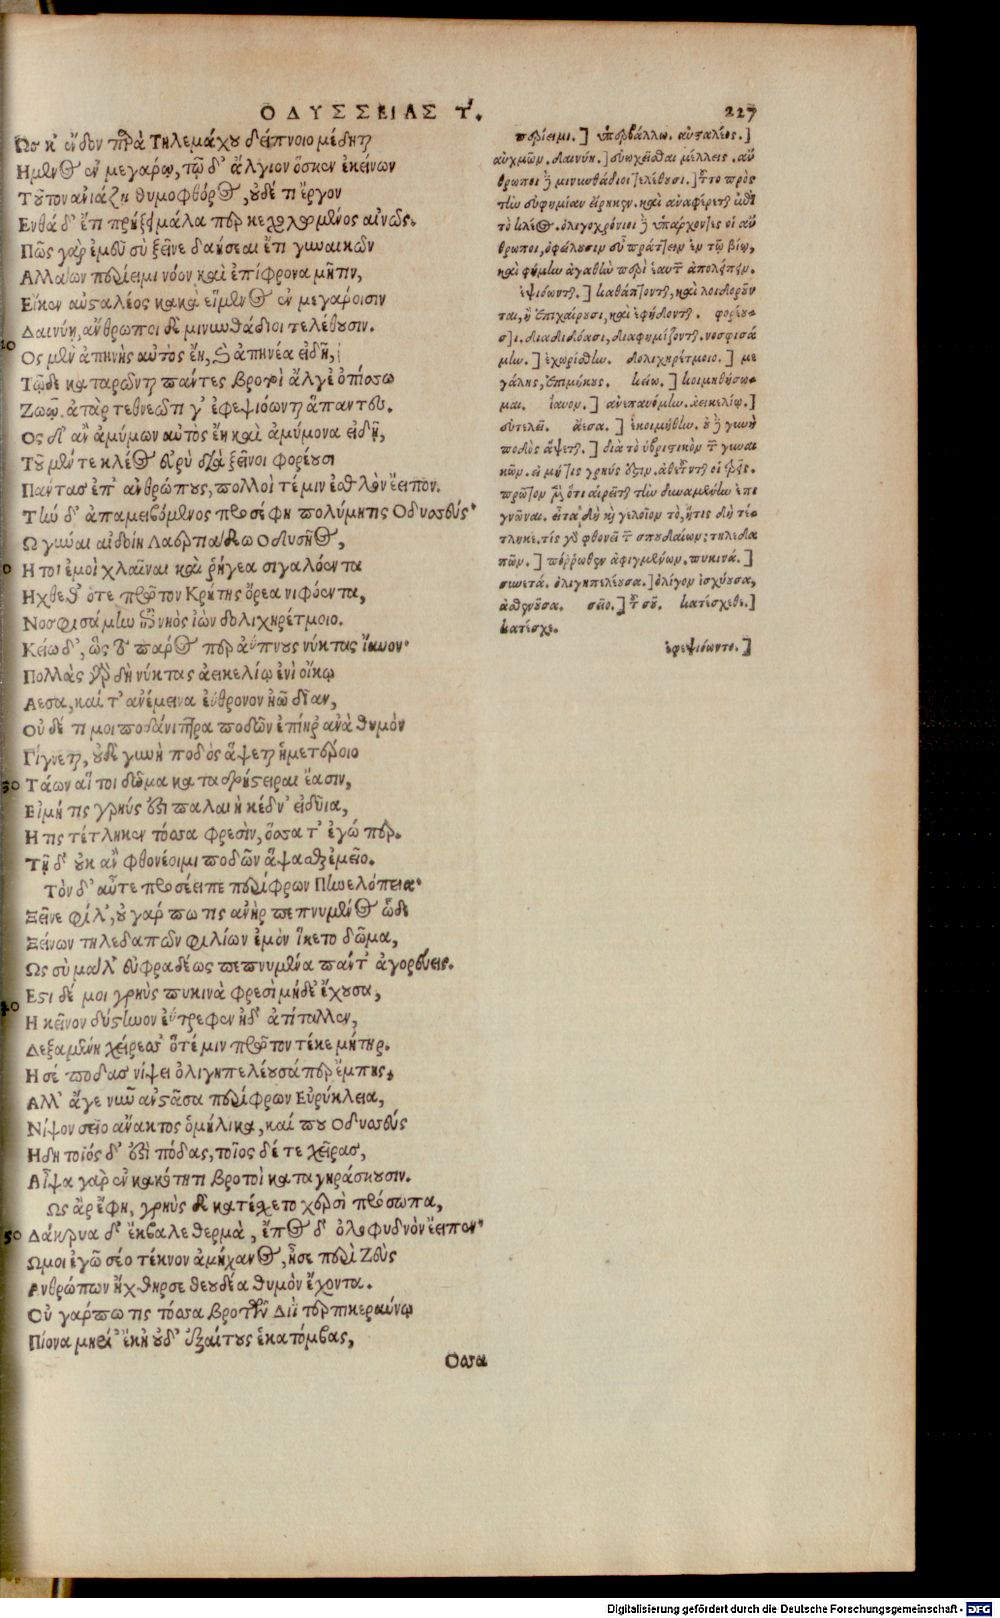 ΟΔΥΣΣΕΙΑΣ Τ. 227
Ως κ' ἔνδον παρὰ Τηλεμάχῳ δείπνοιο μέδηται
Ημενος ἐν μεγάρῳ, τῷ δ' ἄλγιον ὅς κεν ἐκείνων
Τοῦτον ἀνιάζῃ θυμοφθόρος, οὐδέ τι ἔργον
Ενθάδ' ἔτι πρήξει μάλα περ κεχολωμένος αἰνῶς.
Πῶς γὰρ ἐμεῦ σὺ ξεῖνε δαήσεαι εἴ τι γυναικῶν
Αλλάων περίειμι νόον καὶ ἐπίφρονα μῆτιν,
Εἴ κεν αὐσταλέος κακὰ εἱμένος ἐν μεγάροισιν
Δαινύῃ, ἄνθρωποι δὲ μινυνθάδιοι τελέθουσιν.
Ος μὲν ἀπηνὴς αὐτὸς ἔῃ, καὶ ἀπηνέα εἰδῇ,
Τῷδε καταρῶνται πάντες βροτοὶ ἄλγε' ὀπίσσω
Ζωῷ. ἀτὰρ τεθνεῶτί γ' ἐφεψιόωνται ἅπαντες.
Ος δ' ἂν ἀμύμων αὐτὸς ἔῃ καὶ ἀμύμονα εἰδῇ,
Τοῦ μέν τε κλέος εὐρὺ διὰ ξεῖνοι φορέουσι
Πάντας ἐπ' ἀνθρώπους, πολλοί τέ μιν ἐσθλὸν ἔειπον.
Τὴν δ' ἀπαμειβόμενος προσέφη πολύμητις Οδυσσεύς·
Ω γύναι αἰδοίη Λαερτιάδεω Οδυσῆος,
Ητοι ἐμοὶ χλαῖναι καὶ ῥήγεα σιγαλόεντα
Ηχθεθ' ὅτε πρῶτον Κρήτης ὄρεα νιφόεντα,
Νοσφισάμην ἐπὶ νηὸς ἰὼν δολιχηρέτμοιο.
Κείω δ', ὡς τὸ πάρος περ ἀΰπνους νύκτας ἴαυον·
Πολλὰς γὰρ δὴ νύκτας ἀεικελίῳ ἐνὶ οἴκῳ
Αεσα, καί τ' ἀνέμεινα ἐΰθρονον ἠῶ δῖαν,
Οὐδέ τι μοι ποδάνιπτρα ποδῶν ἐπίηρ' ἀνὰ θυμὸν
Γίγνεται, οὐδὲ γυνὴ ποδὸς ἅψεται ἡμετέροιο
30 Τάων αἵ τοι δῶμα κατα δρήστειραι ἔασιν,
Εἰ μή τις γρηύς ἐστι παλαιὴ κέδν' εἰδυῖα,
Η τις τέτληκεν τόσσα φρεσὶν, ὅσσα τ' ἐγώ περ.
Τῇ δ' οὐκ ἂν φθονέοιμι ποδῶν ἅψασθαι ἐμεῖο.
Τὸν δ' αὖτε προσέειπε περίφρων Πηνελόπεια·
Ξεῖνε φίλ', οὐ γάρ πω τις ἀνὴρ πεπνυμένος ὧδε
Ξείνων τηλεδαπῶν φιλίων ἐμὸν ἵκετο δῶμα,
Ως σὺ μάλ' εὐφραδέως πεπνυμένα πάντ' ἀγορεύεις.
Εστι δέ μοι γρηὺς πυκινὰ φρεσὶ μήδε' ἔχουσα,
40 Η κεῖνον δύστηνον ἐΰτρεφεν ἠδ' ἀτίταλλεν,
Δεξαμένη χείρεσσ' ὅτέ μιν πρῶτον τέκε μήτηρ.
Η σέ πόδας νίψει ὀλιγηπελέουσά περ ἔμπης,
Αλλ' ἄγε νῦν ἀνστᾶσα περίφρων Εὐρύκλεια,
Νίψον σεῖο ἄνακτος ὁμήλικα, καί που Οδυσσεύς
Ηδη τοιός δ' ἐστὶ πόδας, τοῖος δέ τε χεῖρας,
Αἶψα γὰρ ἐν κακότητι βροτοὶ καταγηράσκουσιν.
Ως ἄρ' ἔφη, γρηὺς δὲ κατέχετο χερσὶ πρόσωπα,
50 Δάκρυα δ' ἔκβαλε θερμὰ, ἔπος δ' ὀλοφυδνὸν ἔειπεν·
Ωμοι ἐγὼ σέο τέκνον ἀμήχανος, ἦ σε περὶ Ζεὺς
Ανθρώπων ἤχθηρε θεουδέα θυμὸν ἔχοντα.
Οὐ γάρ πω τις τόσσα βροτῶν Διῒ τερπικεραύνῳ
Πίονα μηρί' ἔκη οὐδ' ἐξαίτους ἑκατόμβας,
Οσσα
περίειμι.] ὑπερβάλλω. αὐσταλέος.]
αὐχμῶν. δαινύῃ.] εὐωχεῖσθαι μέλλεις. ἄν
θρωποι δὲ μινυνθάδιοι τελέθουσι.] τοῦτο πρὸς
τὴν εὐφημίαν εἴρηκεν. καὶ ἀναφέρεται ἐπὶ
τὸ κλέος. ὀλιγοχρόνιοι δὲ ὑπάρχοντες οἱ ἄν
θρωποι, ὀφείλουσιν εὖ πράττειν ἐν τῷ βίῳ,
καὶ φήμην ἀγαθὴν περὶ ἑαυτῶν ἀπολείπειν.
ἐφεψιόωνται.] καθάπτονται, καὶ λοιδοροῦν
ται, ἢ ἐπιχαίρουσι, καὶ ἐφήδονται. φορέου
σι. διαδιδόασι, διαφημίζονται. νοσφισά
μην.] ἐχωρίσθην. δολιχηρέτμοιο.] με
γάλης, ἐπιμήκους. κείω.] κοιμηθήσο
μαι. ἴαυον.] ἀνεπαυόμην. ἀεικελίῳ.]
εὐτελεῖ. ἄεσα.] ἐκοιμήθην. οὐδὲ γυνὴ
ποδὸς ἅψεται.] διὰ τὸ ὑβριστικὸν τῶν γυναι
κῶν. εἰ μή τις γρηύς ἐστιν. ἀθετοῦνται οἱ τρεῖς.
πρῶτον μὲν ὅτι αἱρεῖται τὴν δυναμένην ἐπι
γνῶναι. εἶτα δὴ καὶ γελοῖον τὸ, ἥτις δὴ τέ
τληκε. τίς γὰρ φθονεῖ τῶν σπουδαίων; τηλεδα
πῶν.] πόρρωθεν ἀφιγμένων. πυκινά.]
συνετά. ὀλιγηπελέουσα.] ὀλίγον ἰσχύουσα,
ἀσθενοῦσα. σεῖο.] τοῦ σοῦ. κατέσχεθε.]
κατέσχε.
ἐφεψιόωντο.]
Digitalisierung gefördert durch die Deutsche Forschungsgemeinschaft - DFG